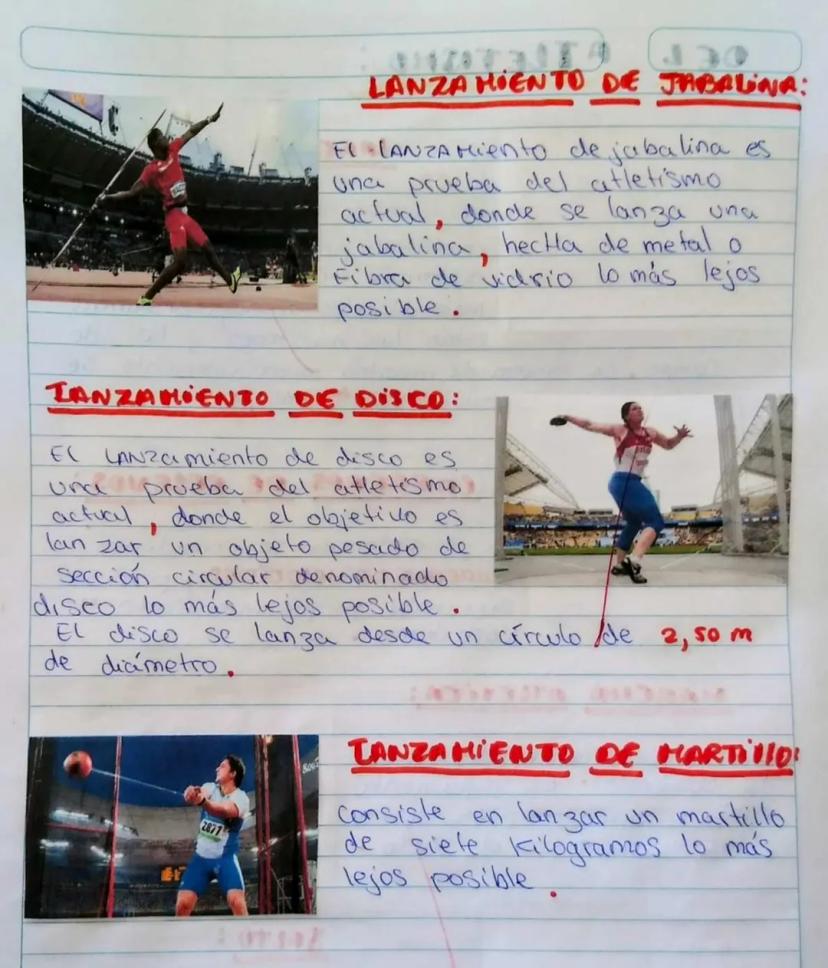 LANZAMIENTO DE JABALINA:
El LANZAMiento de jabalina es
una prueba del atletismo
actual, donde se lanza una
jabalina, hecHa de metal o
Fibra de vidrio lo más lejos
posible.
LANZAMIENTO DE DISCO:
El LANZamiento de disco es
una prueba del atletismo
actual, donde el objetivo es
lan zar un objeto pesado de
sección circular denominado
disco lo más lejos posible.
El disco se lanza desde un círculo de 2,50 m
de diámetro.
LANZAMIENTO DE MARTillO:
consiste en lanzar un martillo
de siete kilogramos lo más
lejos posible.
2877